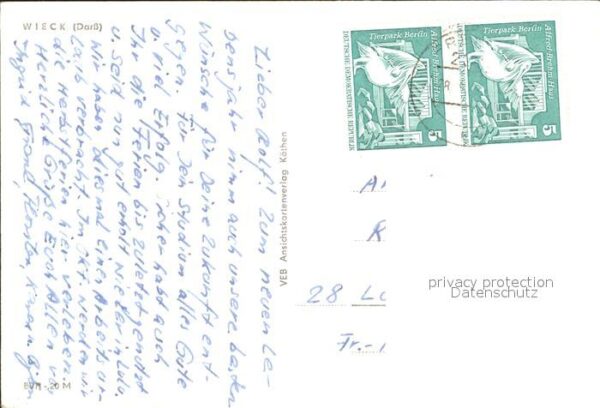 WIECK (Darß)
Lieber Rolf! Zum neuen Le-
bensjahr nimm auch unsere besten
Wünsche für Deine Zukunft ent-
gegen. Für Dein Studium alles Gute
u. viel Erfolg. Sicher habt auch
Ihr die Ferien bis zuletzt genutzt
u. seid nun gut erholt
Wir haben diesmal einen Arbeitsur-
laub verbracht. Im Okt. werden wir
die Herbstferien hier verleben.
Herzliche Grüße Euch Allen von
Ingrid
EVP -,20 M
VEB Ansichtskartenverlag Köthen
Tierpark Berlin
Alfred-Brehm-Haus
DEUTSCHE DEMOKRATISCHE REPUBLIK
5
Tierpark Berlin
Alfred-Brehm-Haus
DEUTSCHE DEMOKRATISCHE REPUBLIK
5
28 Le
Fr.-
privacy protection
Datenschutz